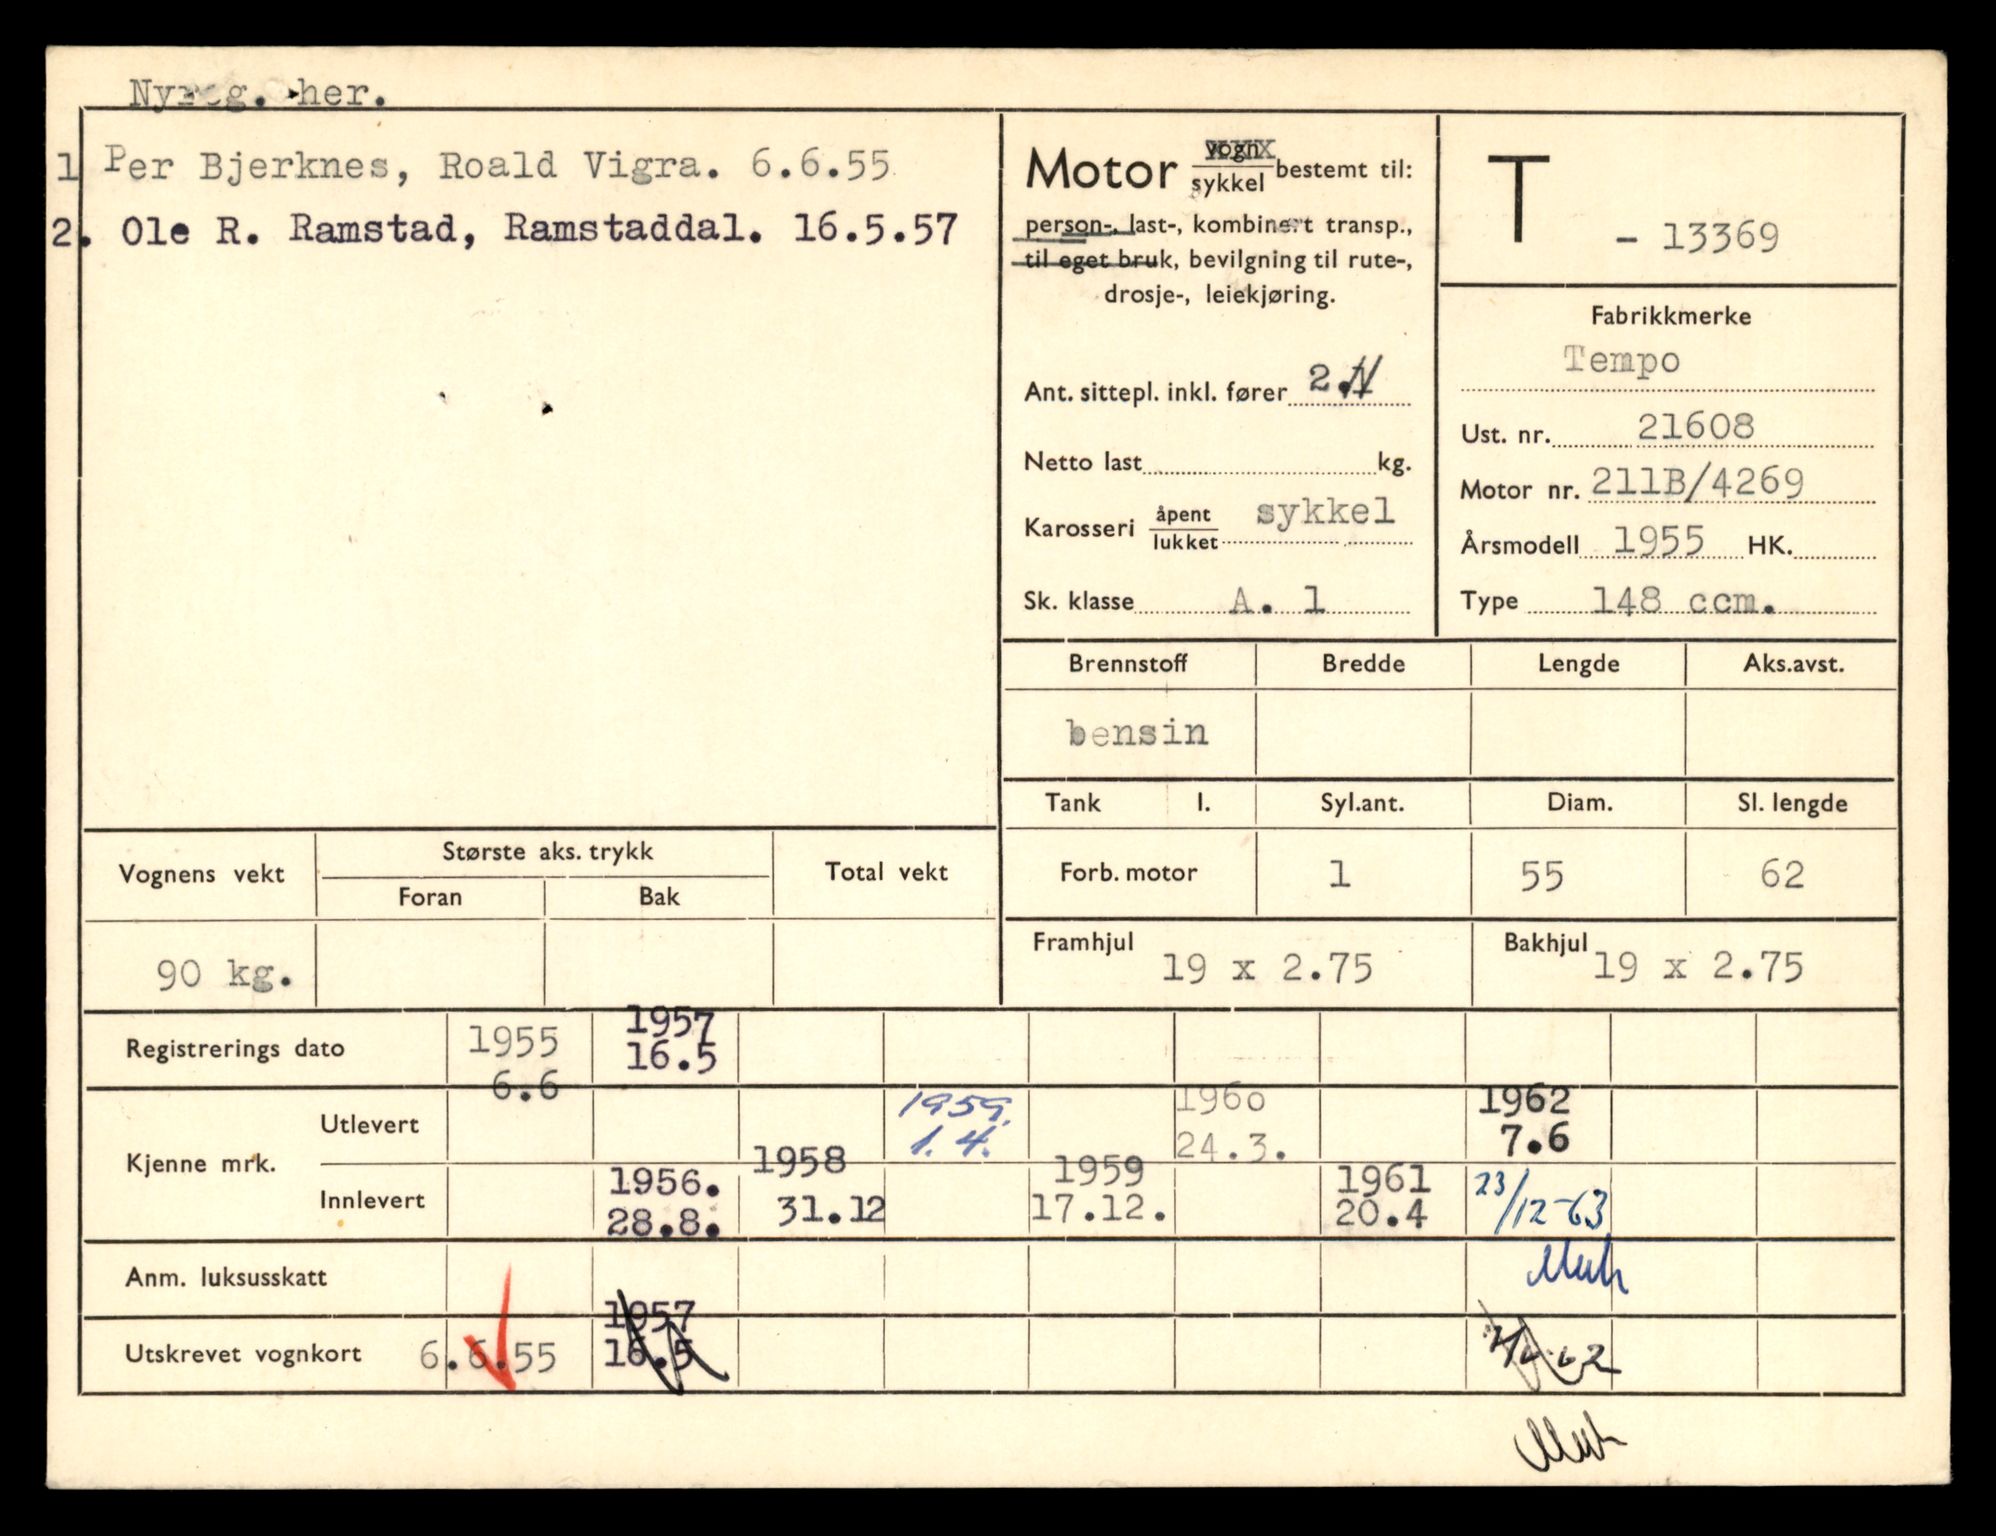 Nyreg. her.
1 Per Bjerknes, Roald Vigra. 6.6.55
2. Ole R. Ramstad, Ramstaddal. 16.5.57
Motor vogn/sykkel bestemt til:
person-, last-, kombinert transp.,
til eget bruk, bevilgning til rute-,
drosje-, leiekjøring.
Ant. sittepl. inkl. fører 2.
Netto last kg.
Karosseri åpent/lukket sykkel
Sk. klasse A. 1
T - 13369
Fabrikkmerke
Tempo
Ust. nr. 21608
Motor nr. 211B/4269
Årsmodell 1955 HK.
Type 148 ccm.
Brennstoff Bredde Lengde Aks.avst.
bensin
Tank l. Syl.ant. Diam. Sl. lengde
Forb. motor 1 55 62
Framhjul 19 x 2.75 Bakhjul 19 x 2.75
Vognens vekt Største aks. trykk Total vekt
Foran Bak
90 kg.
Registrerings dato 1955 6.6 1957 16.5
Kjenne mrk.
Utlevert 1959. 1.4. 1960 24.3. 1962 7.6
Innlevert 1956. 28.8. 1958 31.12 1959 17.12. 1961 20.4 23/12-63
Anm. luksusskatt
Utskrevet vognkort 6.6.55 1957 16.5